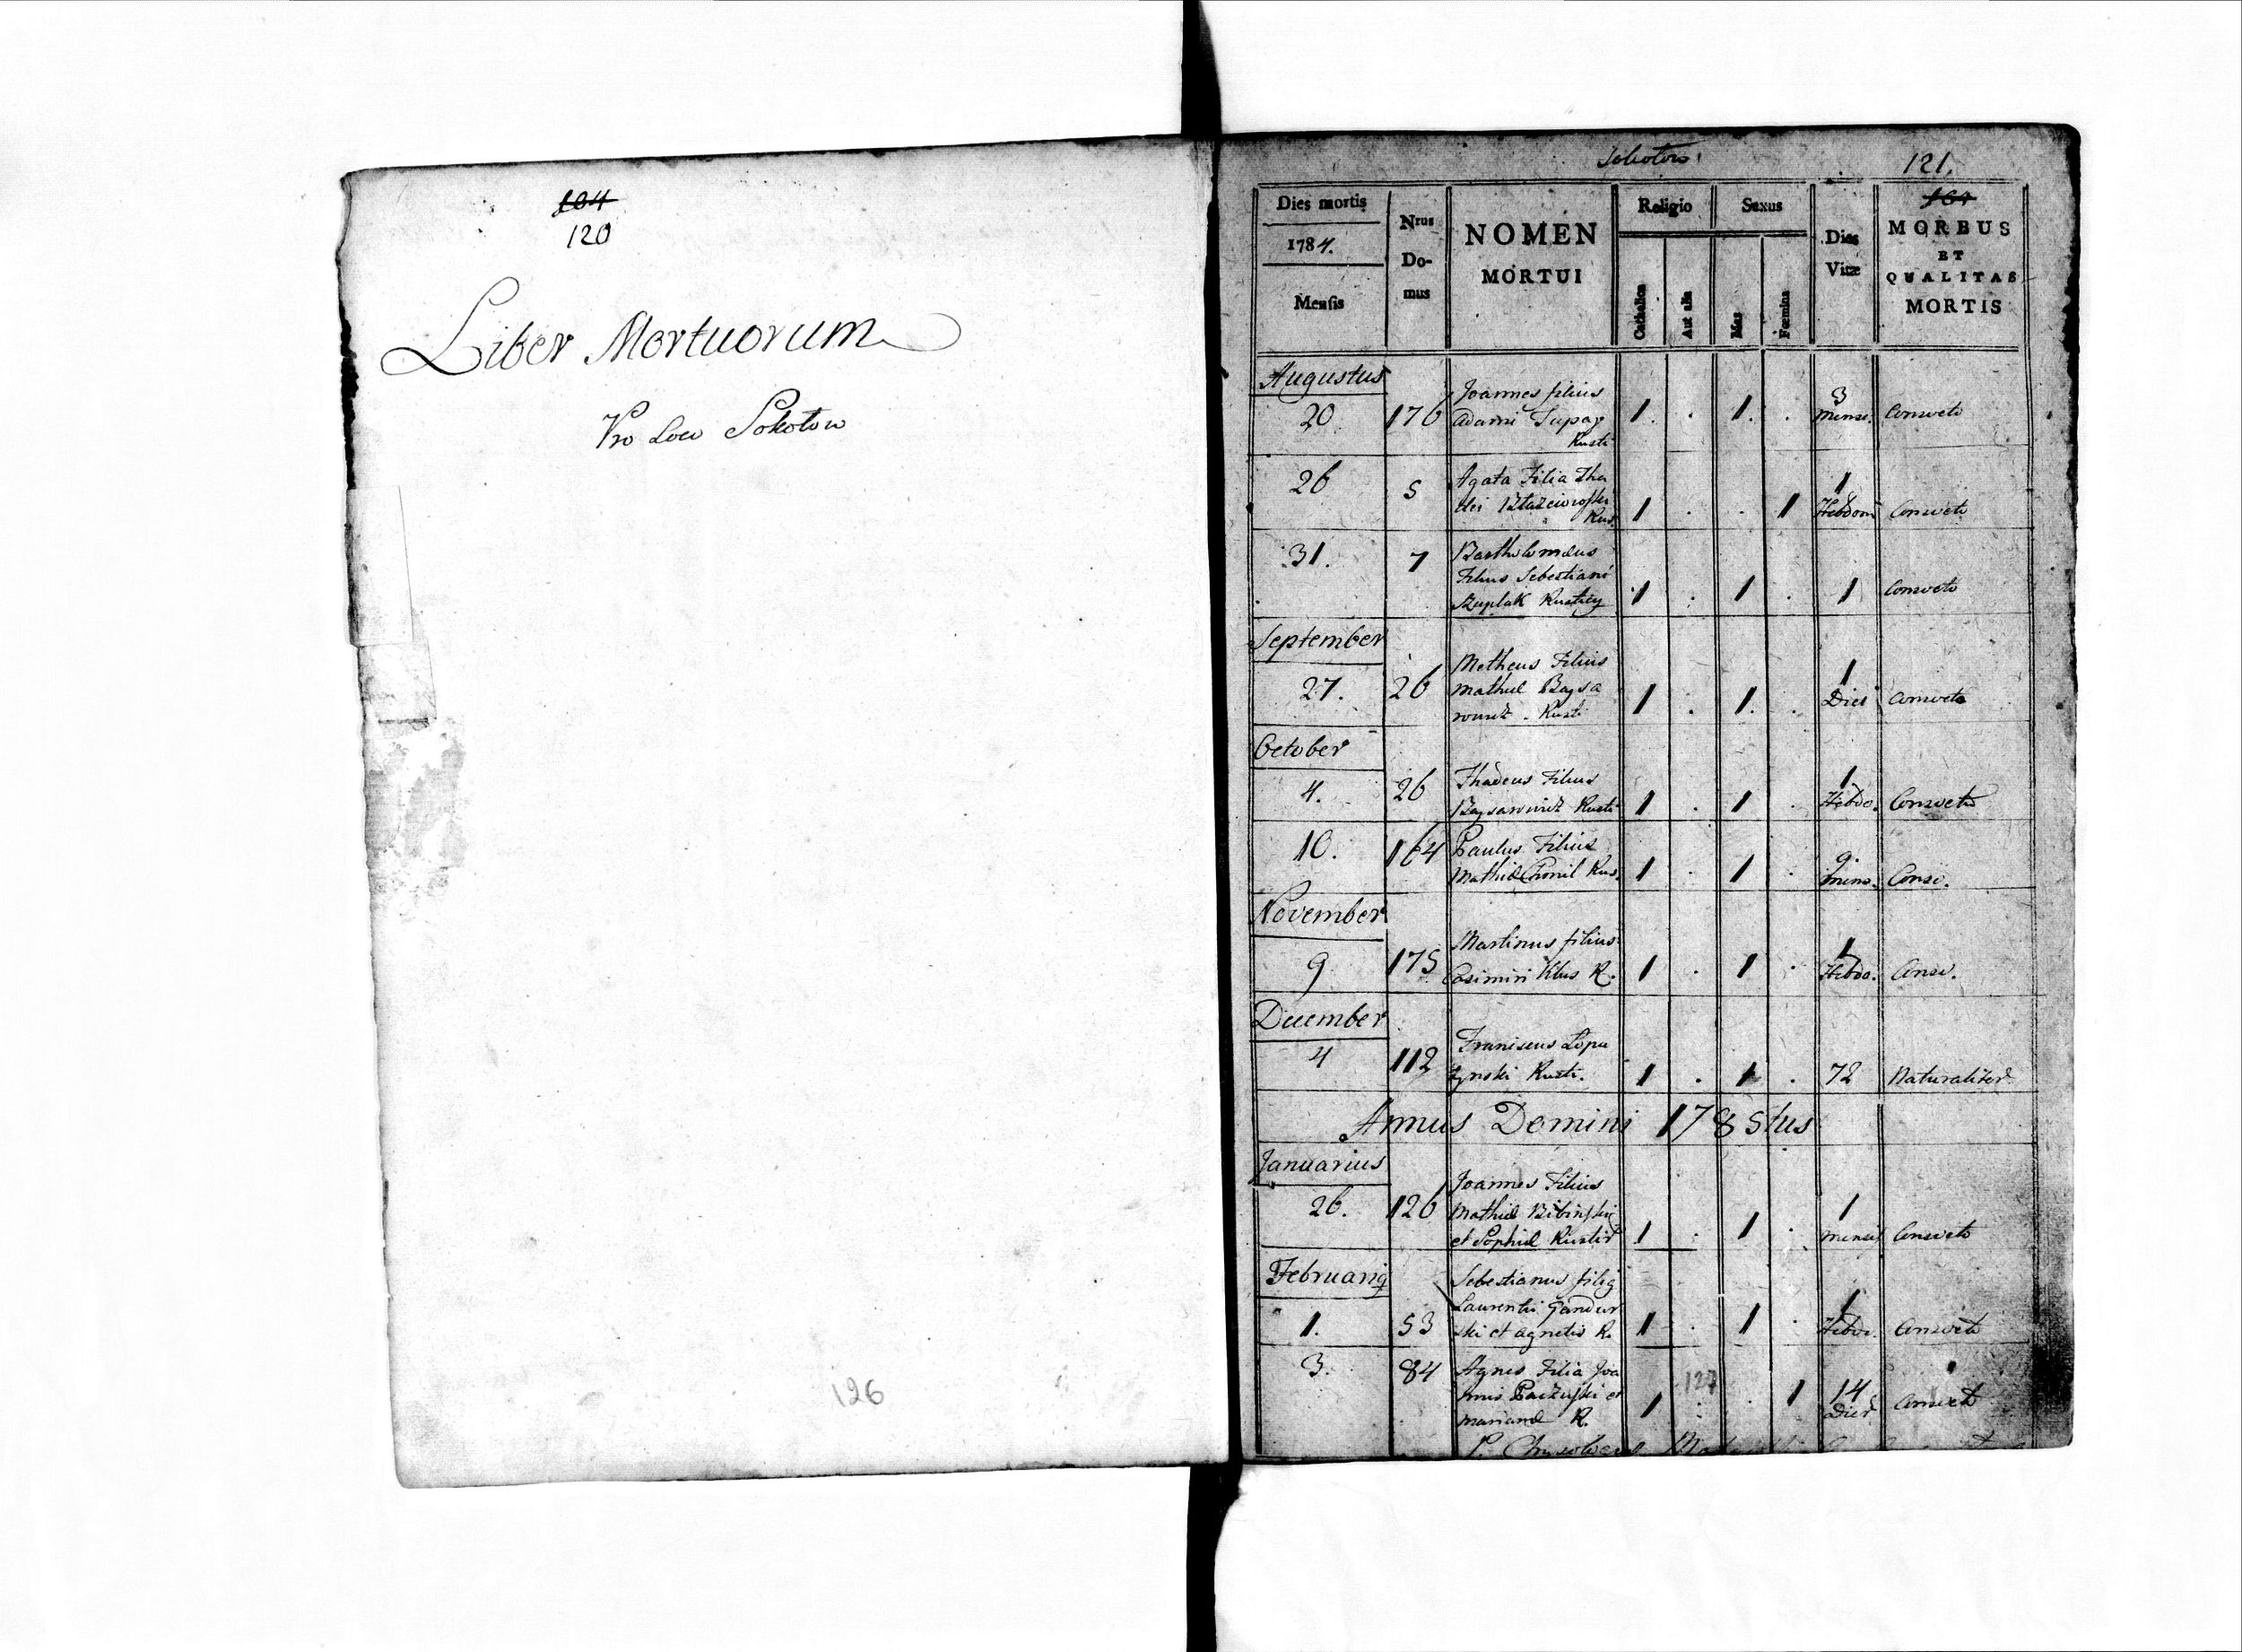 104
120
Liber Mortuorum
Pro Loco Sokołow
126
Sokołow
121.
Dies mortis
1784.
Mensis
Nrus
Do-
mus
NOMEN
MORTUI
Religio
Catholica
Aut alia
Sexus
Mas
Fœmina
Dies
Vitæ
MORBUS
ET
QUALITAS
MORTIS
Augustus
20 176 Joannes filius
Adami
Rusti
1 . 1 . 3 mens. Consveto
26 5 Agata Filia Tha
dei
Rus.
1 . . 1 1 Hebdom Consveto
31. 7 Bartholomæus
Filius Sebestiani
Szuplak Rusticy
1 . 1 . 1 Consveto
September
27. 26 Matheus Filius
Baysa
rowicz . Rusti
1 . 1. . 1 Dies Consveto
October
4. 26 Thadeus Filius
Baysarowicz Rusti
1 . 1 . 1 Hebdo. Consveto
10. 164 Paulus Filius
Mathiæ Chmil Rus.
1 . 1 . 9. mens. Consv.
November
9 175 Martinus filius
Casimiri Klus R.
1 . 1 . 1 Hebdo. Consv.
December
4 112 Franiscus Lopu
szynski Rusti.
1 . 1 . 72 Naturaliter
Annus Domini 1785tus
Januarius
26. 126 Joannes Filius
Mathiæ Bibinski
et Sophiæ
1 . 1 . 1 mensis Consveto
Februarig
1. 53 Sebestianus filig
Laurentii Gandur
ski et Agnetis R.
1 . 1 . 1 Hebdo. Consveto
3. 84 Agnes Filia Joa
nnis et
Marianæ R.
1 . . 1 14 Dier Consveto
127
P.